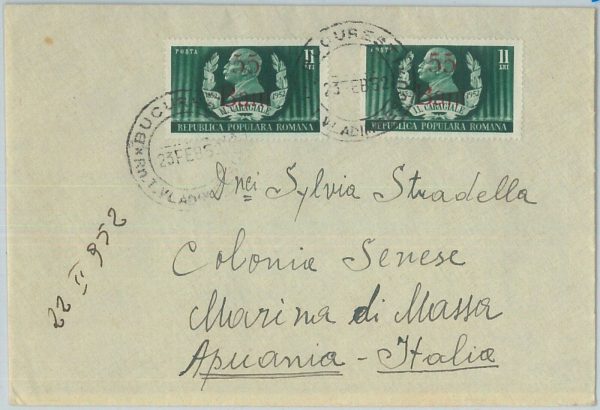 POSTA 11 LEI
55 Bani
1852 1952
I.L. CARAGIALE
REPUBLICA POPULARA ROMANA
POSTA 11 LEI
55 Bani
1952
I.L. CARAGIALE
REPUBLICA POPULARA ROMANA
BUCUREȘTI
23 FEB 52
VLADIMIRESCU
BUCUREȘTI
23 FEB 52
T. VLADIMI
Dnei Sylvia Stradella
Colonia Senese
Marina di Massa
Apuania - Italia
22 II 952